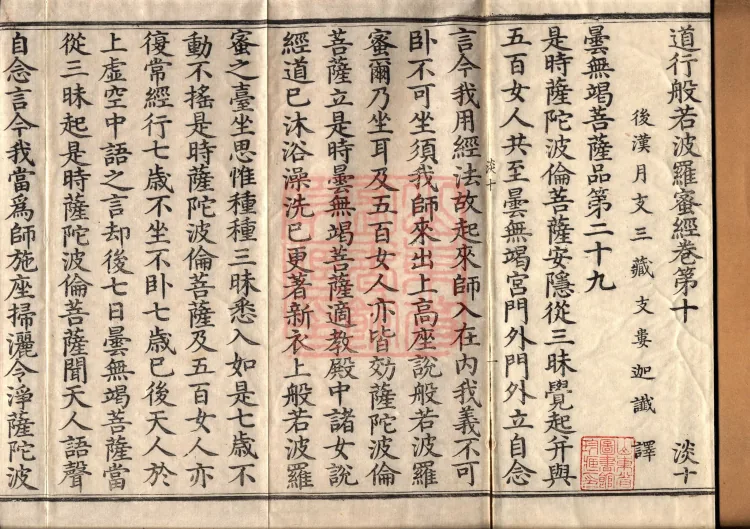 道行般若波羅蜜經卷第十 淡十
後漢月支三藏支婁迦讖譯
曇無竭菩薩品第二十九
是時薩陀波倫菩薩安隱從三昧覺起并與
五百女人共至曇無竭宮門外門外立自念
淡十
言今我用經法故起來師入在內我義不可
卧不可坐須我師來出上高座說般若波羅
蜜爾乃坐耳及五百女人亦皆効薩陀波倫
菩薩立是時曇無竭菩薩適教殿中諸女說
經道已沐浴澡洗已更著新衣上般若波羅
蜜之臺坐思惟種種三昧悉入如是七歲不
動不搖是時薩陀波倫菩薩及五百女人亦
復常經行七歲不坐不卧七歲已後天人於
上虛空中語之言却後七日曇無竭菩薩當
從三昧起是時薩陀波倫菩薩聞天人語聲
自念言今我當爲師施座掃灑令淨薩陀波